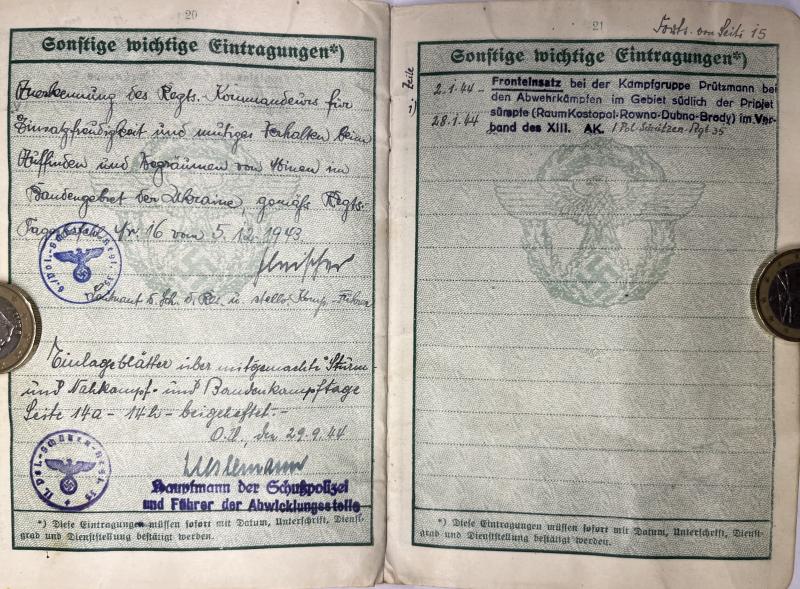 20
Sonstige wichtige Eintragungen*)
Anerkennung des Regts.-Kommandeurs für
Einsatzfreudigkeit und mutiges Verhalten beim
Auffinden und Wegräumen von Minen im
Bandengebiet der Ukraine, gemäß Regts.
Tagesbefehl Nr. 16 vom 5.12.1943.
Leutnant d. Sch. d. Res. u. stellv. Komp.-Führer
Einlageblätter über mitgemachte Sturm-
und Nahkampf- und Bandenkampftage
Seite 14a - 14h - beigeheftet.-
O.U., den 29.9.44
Hauptmann der Schutzpolizei
und Führer der Abwicklungsstelle
*) Diese Eintragungen müssen sofort mit Datum, Unterschrift, Dienst-
grad und Dienststellung bestätigt werden.
21
Forts. von Seite 15
Sonstige wichtige Eintragungen*)
1) Zeile
2.1.44 –
28.1.44
Fronteinsatz bei der Kampfgruppe Prützmann bei
den Abwehrkämpfen im Gebiet südlich der Pripjet
sümpfe (Raum Kostopol-Rowno-Dubno-Brody) im Ver-
band des XIII. AK. I Pol. Schützen-Rgt 35
*) Diese Eintragungen müssen sofort mit Datum, Unterschrift, Dienst-
grad und Dienststellung bestätigt werden.